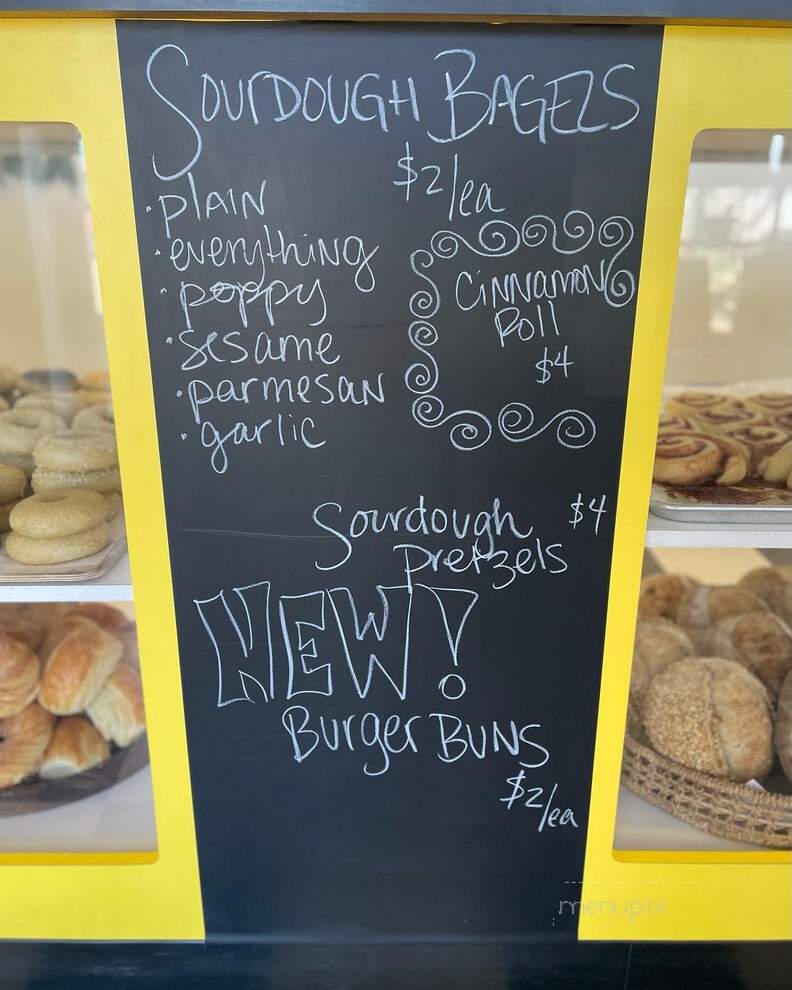 SOURDOUGH BAGELS
$2/ea
• plAIN
• everything
• poppy
• sesame
• parmesan
• garlic
CINNAMON
Roll
$4
Sourdough $4
pretzels
NEW!
Burger BUNS
$2/ea
menupix